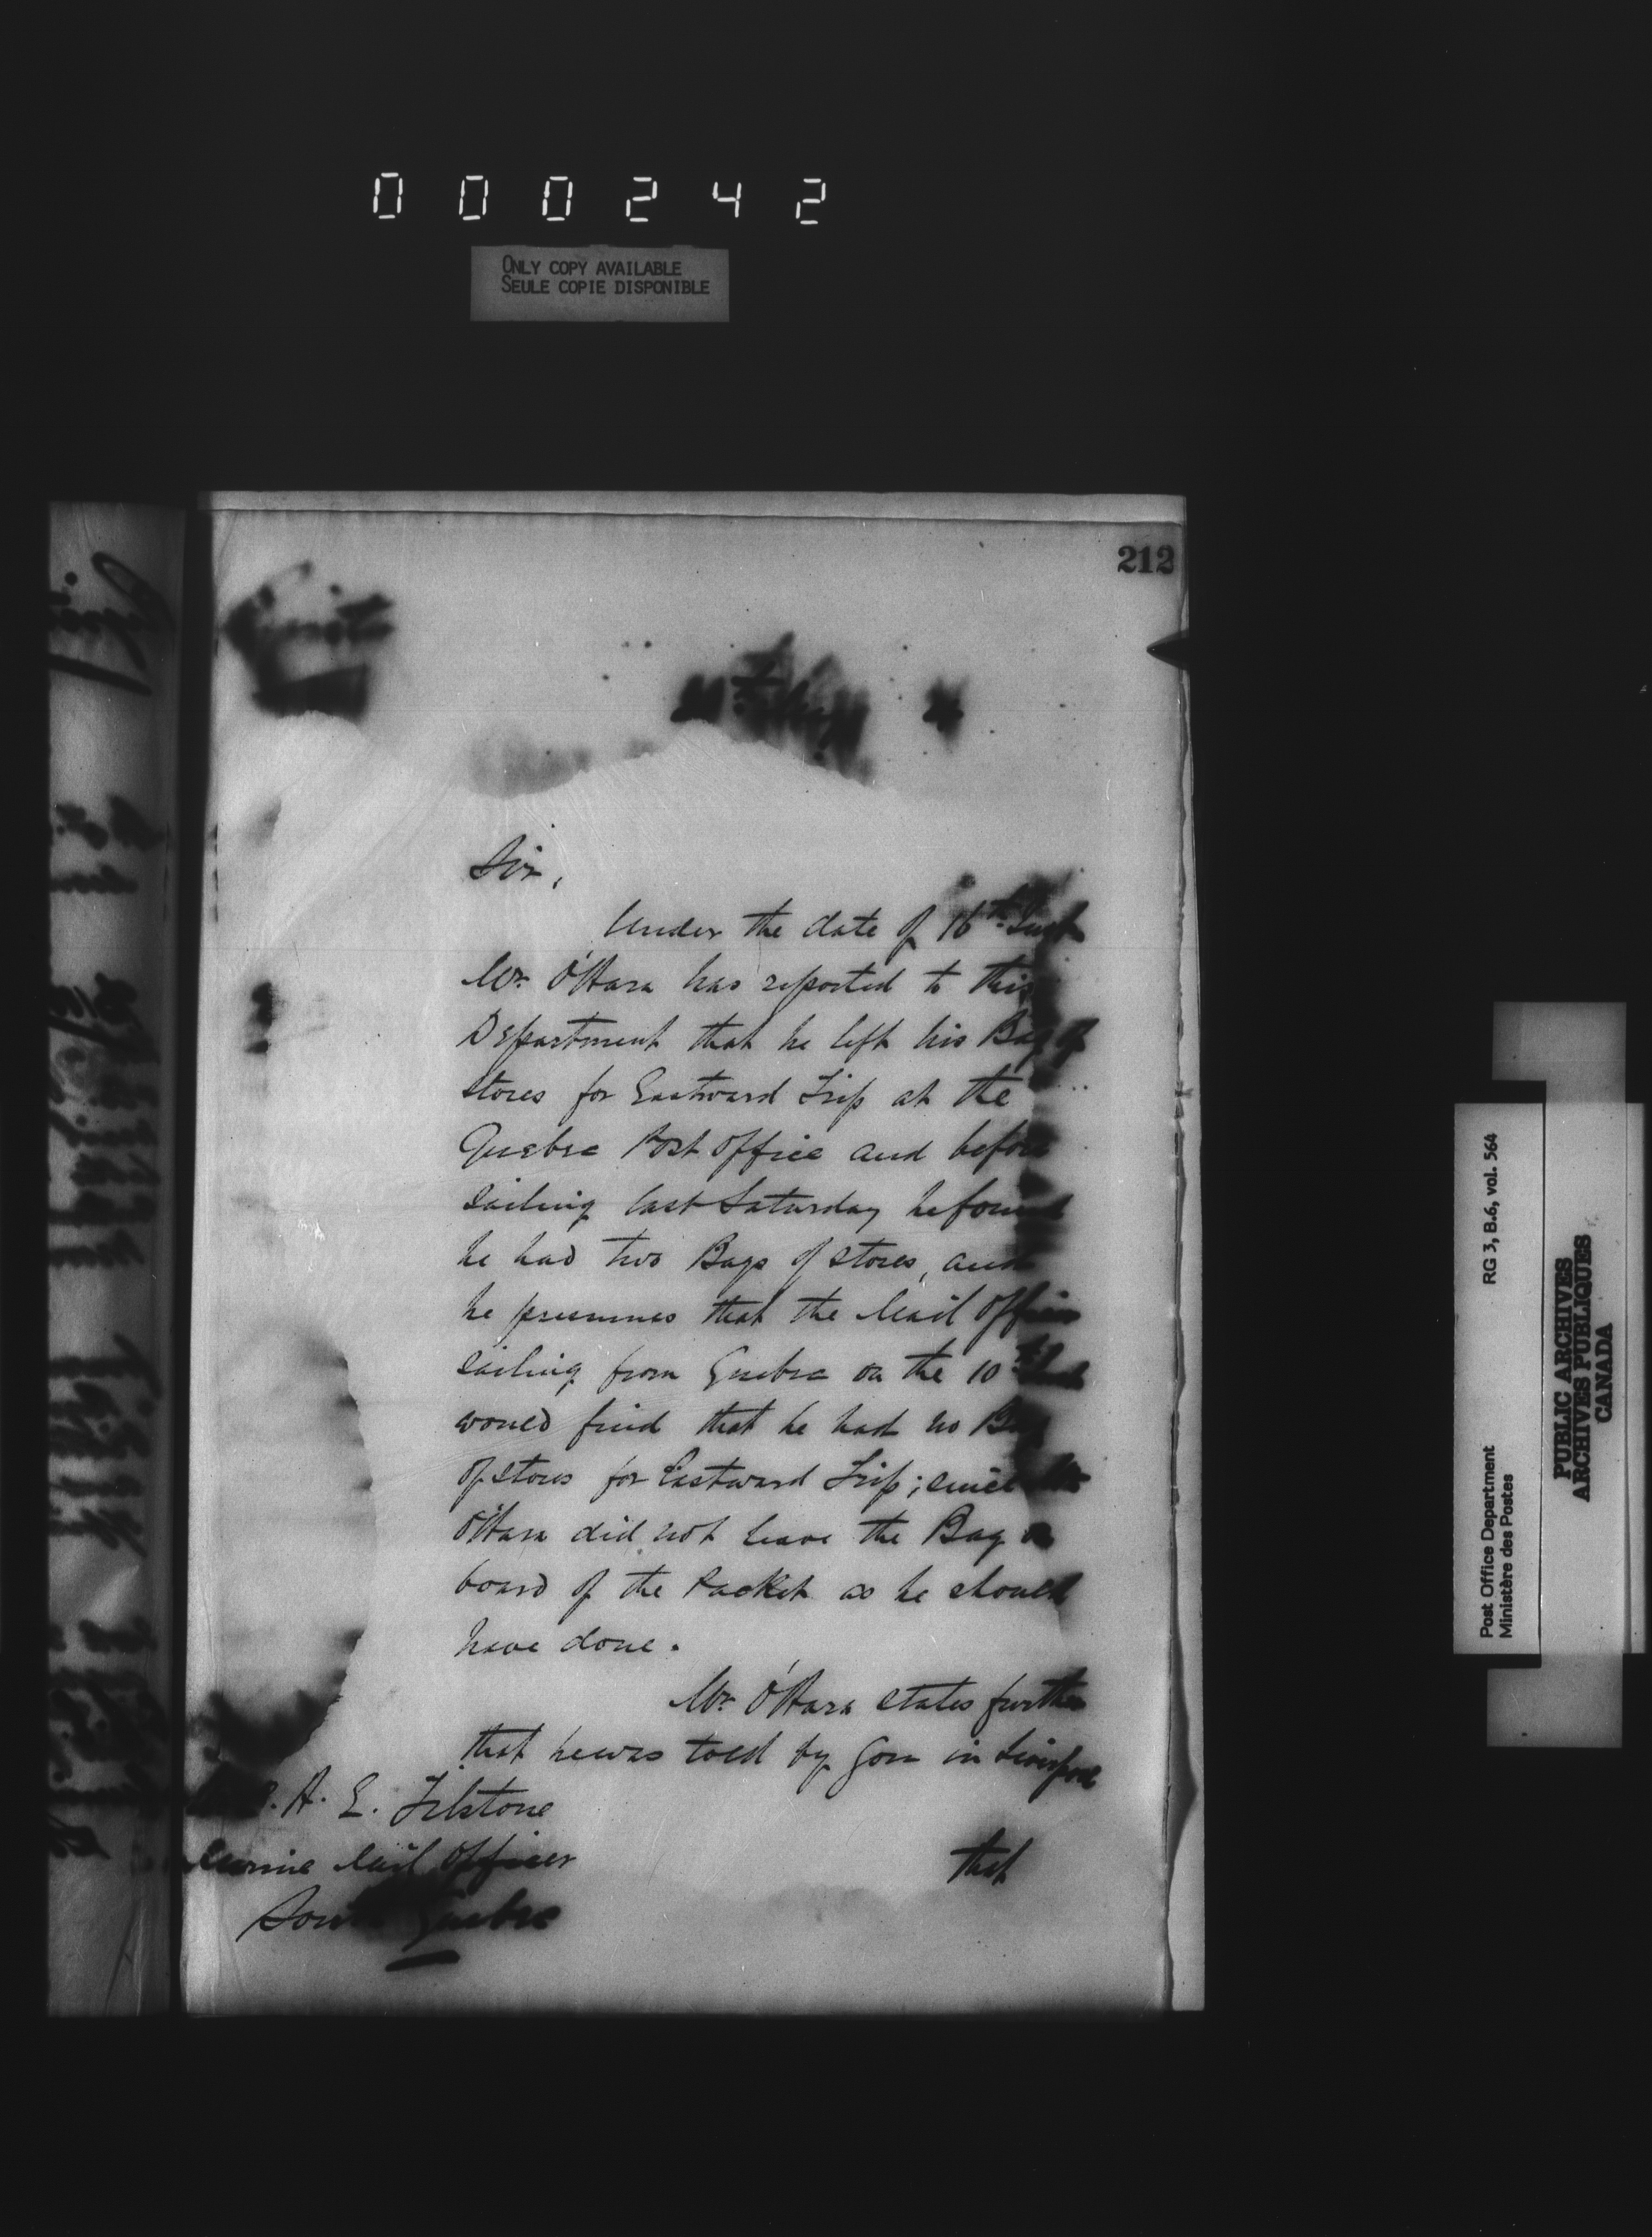 000242
ONLY COPY AVAILABLE
SEULE COPIE DISPONIBLE
212
Sir,
Under the date of 16th Inst
Mr. O'Hara has reported to this
Department that he left his Bag of
stores for Eastward Trip at the
Quebec Post Office and before
sailing last Saturday he found
he had two Bags of stores, and
he presumes that the Mail Officer
sailing from Quebec on the 10th Inst
would find that he had no Bag
of stores for Eastward Trip; since Mr
O'Hara did not leave the Bag on
board of the Packet as he should
have done.
Mr. O'Hara states further
that he was told by you in Liverpool
A. E.
Marine Mail Officer
South Quebec
that
Post Office Department RG 3, B.6, vol. 564
Ministère des Postes
PUBLIC ARCHIVES
ARCHIVES PUBLIQUES
CANADA